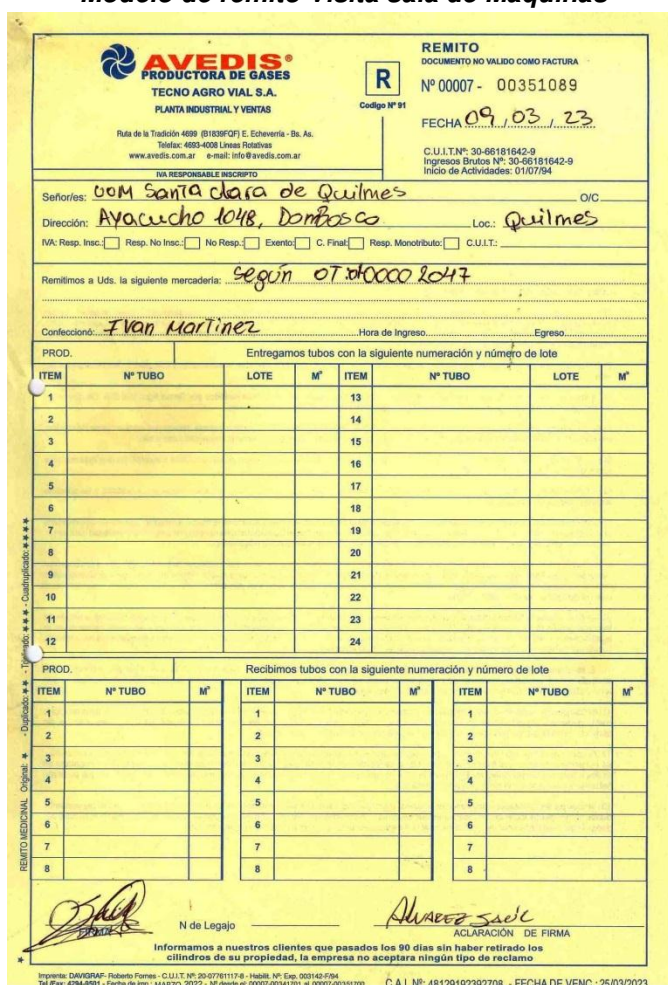 Modelo de remito Visita Sala de Máquinas
AVEDIS®
PRODUCTORA DE GASES
TECNO AGRO VIAL S.A.
PLANTA INDUSTRIAL Y VENTAS
Ruta de la Tradición 4699 (B1839FQF) E. Echeverria - Bs. As.
Telefax: 4693-4008 Lineas Rotativas
www.avedis.com.ar e-mail: info@avedis.com.ar
IVA RESPONSABLE INSCRIPTO
R
Codigo Nº 91
REMITO
DOCUMENTO NO VALIDO COMO FACTURA
Nº 00007 - 00351089
FECHA 09 / 03 / 23
C.U.I.T.Nº: 30-66181642-9
Ingresos Brutos Nº: 30-66181642-9
Inicio de Actividades: 01/07/94
Señor/es: UOM Santa Clara de Quilmes O/C
Dirección: Ayacucho 1048, Don Bosco Loc.: Quilmes
IVA: Resp. Insc.: Resp. No Insc.: No Resp.: Exento: C. Final: Resp. Monotributo: C.U.I.T.:
Remitimos a Uds. la siguiente mercadería: Según OT: 00002047
Confeccionó: Ivan Martinez Hora de Ingreso Egreso
PROD. Entregamos tubos con la siguiente numeración y número de lote
ITEM Nº TUBO LOTE M³ ITEM Nº TUBO LOTE M³
1 13
2 14
3 15
4 16
5 17
6 18
7 19
8 20
9 21
10 22
11 23
12 24
PROD. Recibimos tubos con la siguiente numeración y número de lote
ITEM Nº TUBO M³ ITEM Nº TUBO M³ ITEM Nº TUBO M³
1 1 1
2 2 2
3 3 3
4 4 4
5 5 5
6 6 6
7 7 7
8 8 8
FIRMA N de Legajo Alvarez Saúl
ACLARACIÓN DE FIRMA
Informamos a nuestros clientes que pasados los 90 días sin haber retirado los
cilindros de su propiedad, la empresa no aceptara ningún tipo de reclamo
Imprenta: DAVIGRAF- Roberto Fornes - C.U.I.T. Nº: 20-07761117-8 - Habilit. Nº: Exp. 003142-F/94
Tel./Fax: 4294-8501 - Fecha de imp.: MARZO 2022 - Nº desde el: 00007-00341701 al 00007-00351700
C.A.I. Nº: 48129192392708 - FECHA DE VENC.: 25/03/2023
REMITO MEDICINAL Original: * - Duplicado: ** - Triplicado: *** - Cuadruplicado: ****